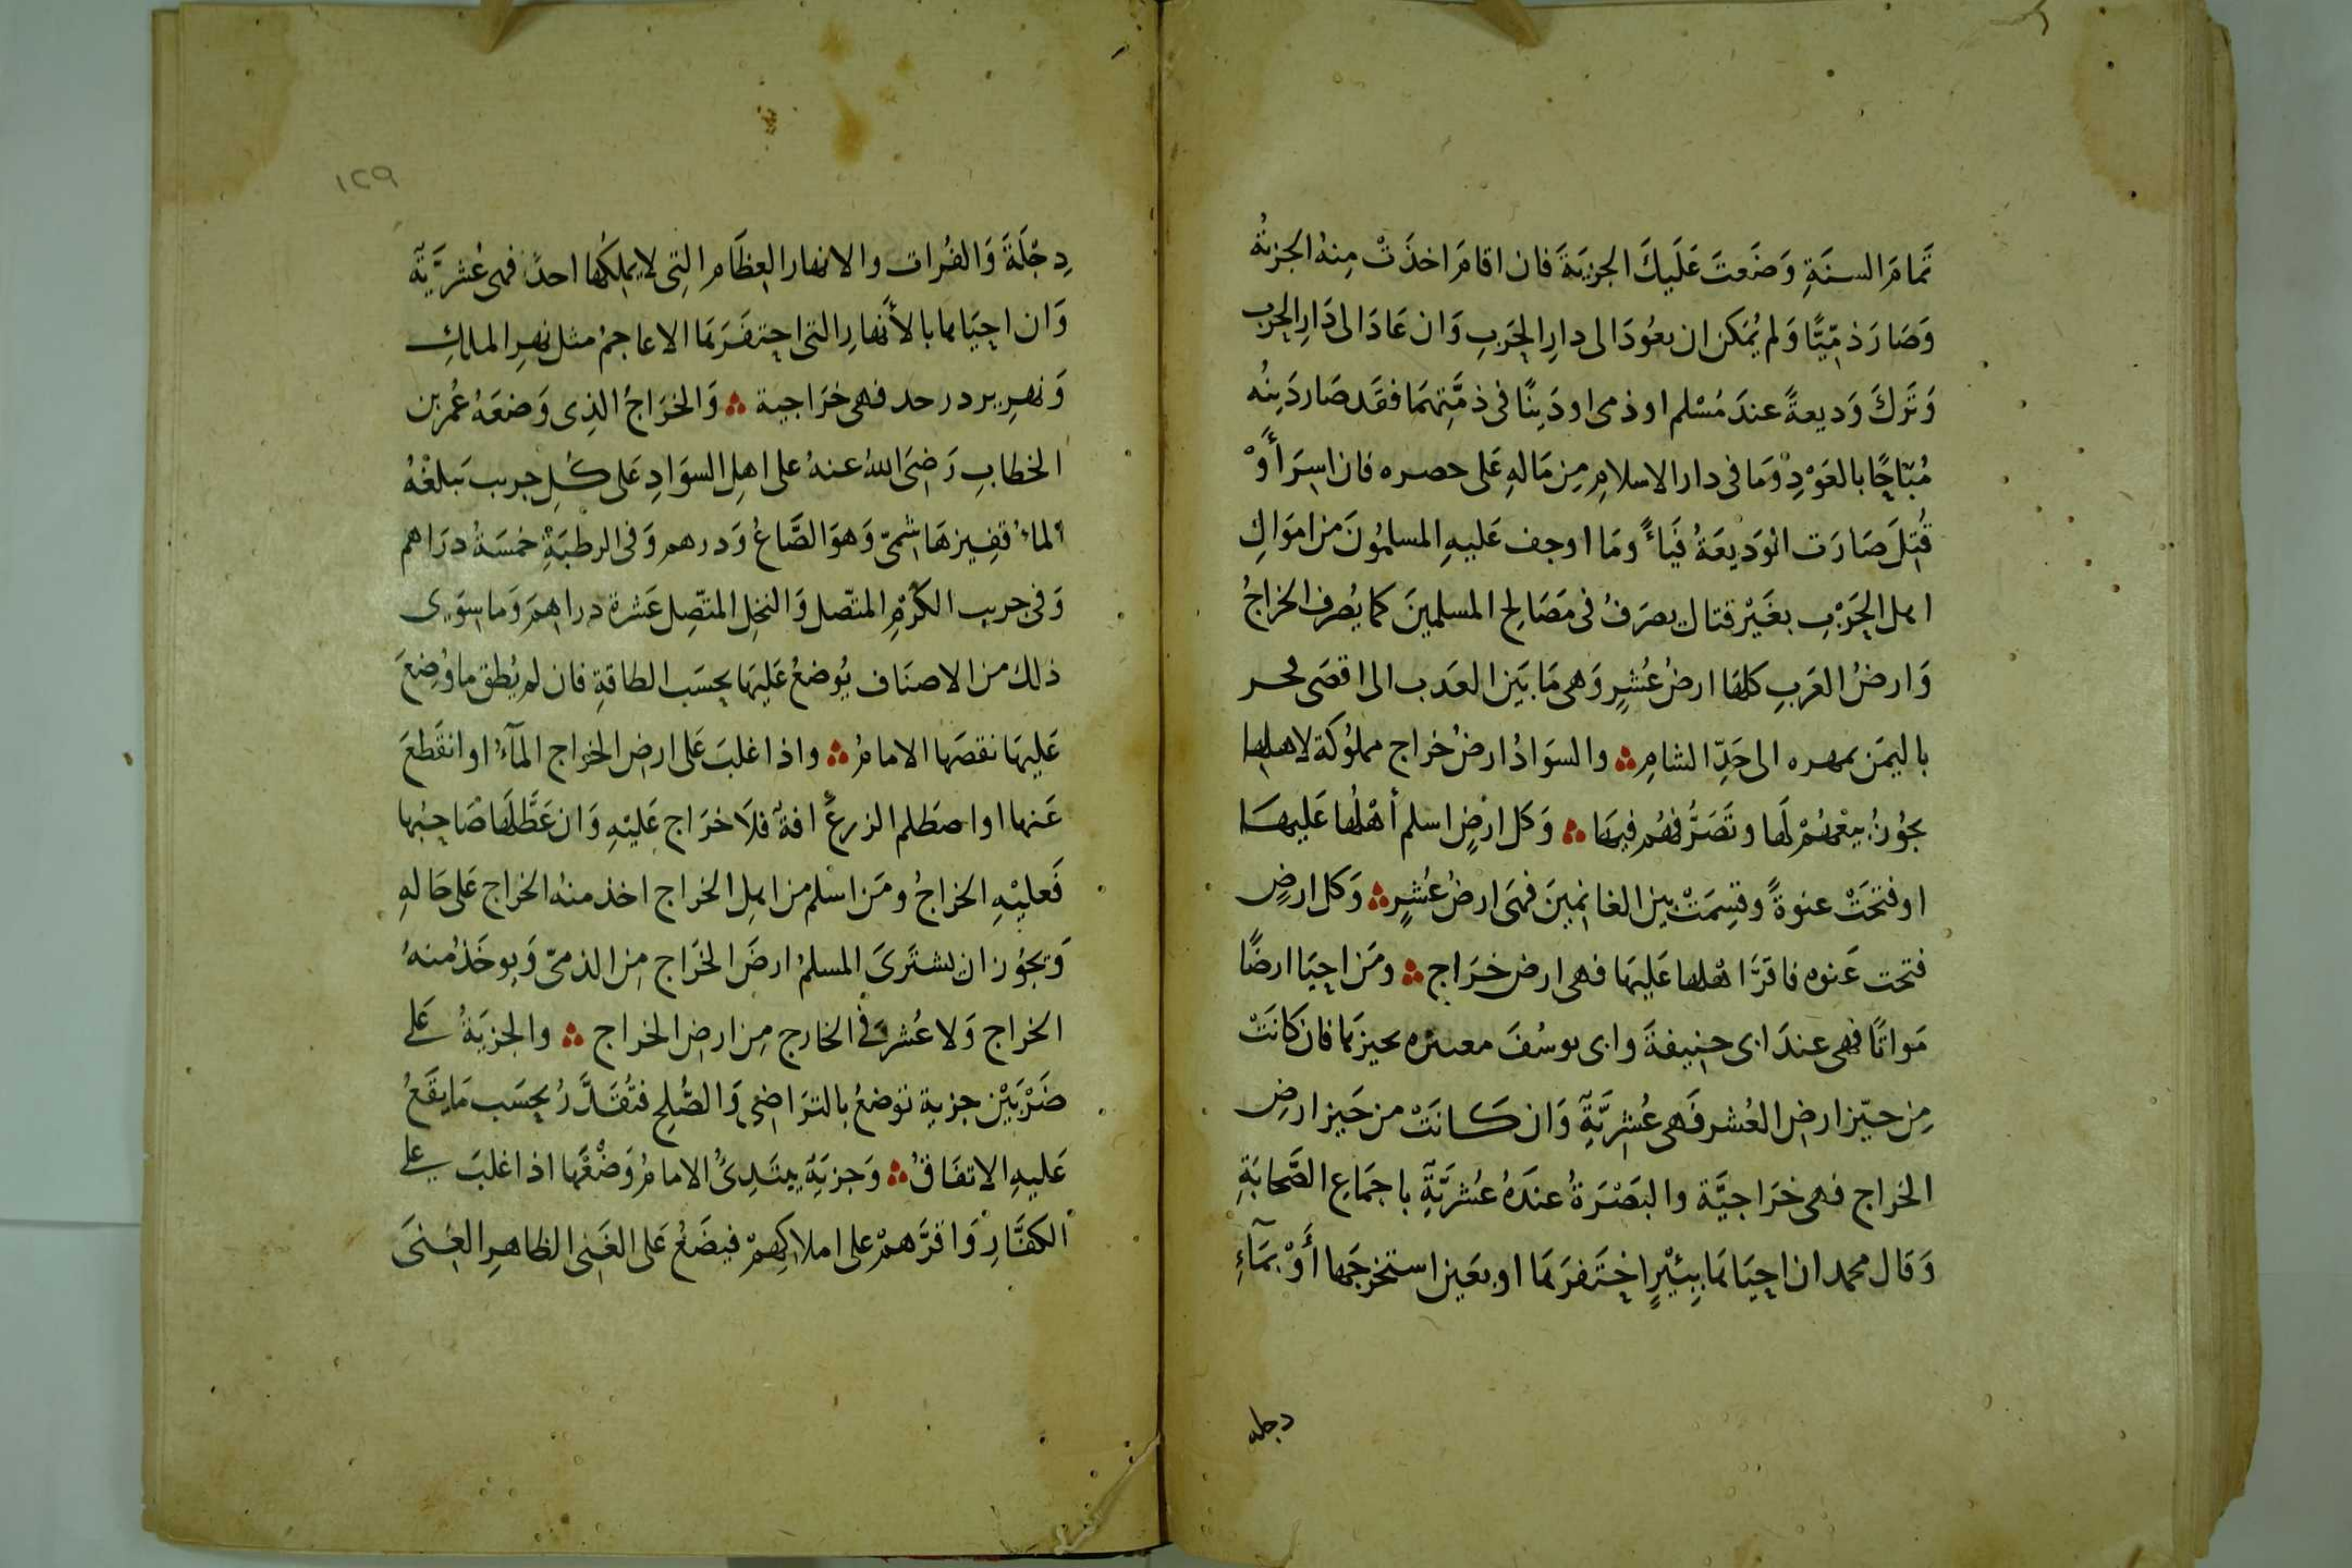 تمامَ السنَةِ وَضَعتَ عَلَيكَ الجزيَةَ فان اقامَ اخذَتْ مِنهُ الجزيةُ
وَصَارَ ذمّيًّا وَلم يُمكن ان يعُودَ الى دارِ الحَربِ وَان عَادَ الى دَارِ الحرب
وَتَركَ وَديعةً عندَ مُسْلم او ذمى او دَينًا فى ذمَّتِهمَا فقَد صَار دَمُه
مُبَاحًا بالعَوْدِ وَمَا فى دار الاسلامِ مِن مَالهِ عَلى خطره فان اسِرَ أَوْ
قُتِلَ صَارَت الوَديعَةُ فَيأً ومَا اوجف عَليهِ المسلمُونَ من اموَالِ
اهل الحَرْبِ بغَيْر قتال يصرَفُ فى مَصَالح المسلمينَ كما يُصرف الخراجُ
وَارضُ العَربِ كلهَا ارضُ عُشرٍ وَهى مَا بَين العذَب الى اقصَى حجر
باليمَن بمهره الى حَدِّ الشامِ ؞ والسوَادُ ارضُ خراج مملوُكَة لاهلها
يجوُزُ بيْعهُمْ لَها وتَصَرُّفهُم فيهَا ؞ وَكل ارضٍ اسلم أهْلُها عَليهَا
او فتحَتْ عنوةً وقسِمَتْ بين الغانِمينَ فهىَ ارضُ عُشرٍ ؞ وَكل ارضٍ
فتحت عَنوه فاقرَّ اهْلها عَليهَا فهى ارض خرَاج ؞ ومَن احيَا ارضًا
مَواتًا فهى عندَ ابى حنيفةَ وابى يوسُفَ معتبره بحيزها فان كانَتْ
مِن حيّز ارض العُشر فَهى عُشرِيَّة وَان كانَتْ من حَيز ارضِ
الخراج فهى خرَاجيَّة والبَصْرَةُ عندَهُ عُشريَّةٍ باجمَاعِ الصَّحابَةِ
وَقال محمد ان احيَاها ببِيْرٍ احْتَفرَها او بعَين استخرجَها أَوْ بمَآءِ
دجله
١٢٩
دِجْلَةَ وَالفُرات والانهار العِظَامر التِى لا يملِكُها احدٌ فهى عُشريَّة
وَان احيَاها بالأنهارِ التى احتفَرَها الاعاجمُ مثل نهرِ الملكِ
وَنهرِ يردجرد فهى خرَاجية ؞ وَالخرَاجُ الذِى وَضعَهُ عُمر بن
الخطابِ رَضىَ اللهُ عنهُ على اهلِ السوَادِ عَلى كُلِ جريب يَبلغْهُ
الماءُ قفِيز هَاشمىّ وَهوَ الصَّاعُ وَدرهم وَفى الرطبَةِ خمسَةُ درَاهم
وَفى جريب الكَرْمِ المتّصل وَالنخِل المتّصِل عَشرة دراهمَ وَما سِوَى
ذلك من الاصنَاف يُوضعُ عَليهَا بحسَب الطاقةِ فان لم يُطِق ما وُضِعَ
عَليهَا نقصَها الامامُ ؞ واذا غلبَ عَلى ارض الخراج المآءُ او انقَطعَ
عَنها او اصطَلم الزرعَ افةٌ فلَا خرَاج عَليْهِ وَان عَطَّلَها صَاحبُها
فَعليْهِ الخراجُ ومَن اسْلم من اهلِ الخراج اخذ منهُ الخراج عَلى حَالهِ
وَيجوُز ان يشتَرىَ المسلمُ ارضَ الخرَاج مِن الذمىّ وَيوخَذُ منهُ
الخراج وَلا عُشر فى الخارج مِن ارض الخراج ؞ والجزيَةُ عَلى
ضَرْبَيْن جزية توضعُ بالترَاضِى وَالصُّلحِ فتُقَدَّرُ بحسَب مَا يقَعُ
عَليهِ الاتفَاقُ ؞ وَجزيَة يبتَدِئُ الامامُ وَضْعَها اذا غلبَ على
الكفَّارِ وَاقرَّهمْ على املاكِهمْ فيضَعُ عَلى الغَنِى الظاهرِ الغِنَى